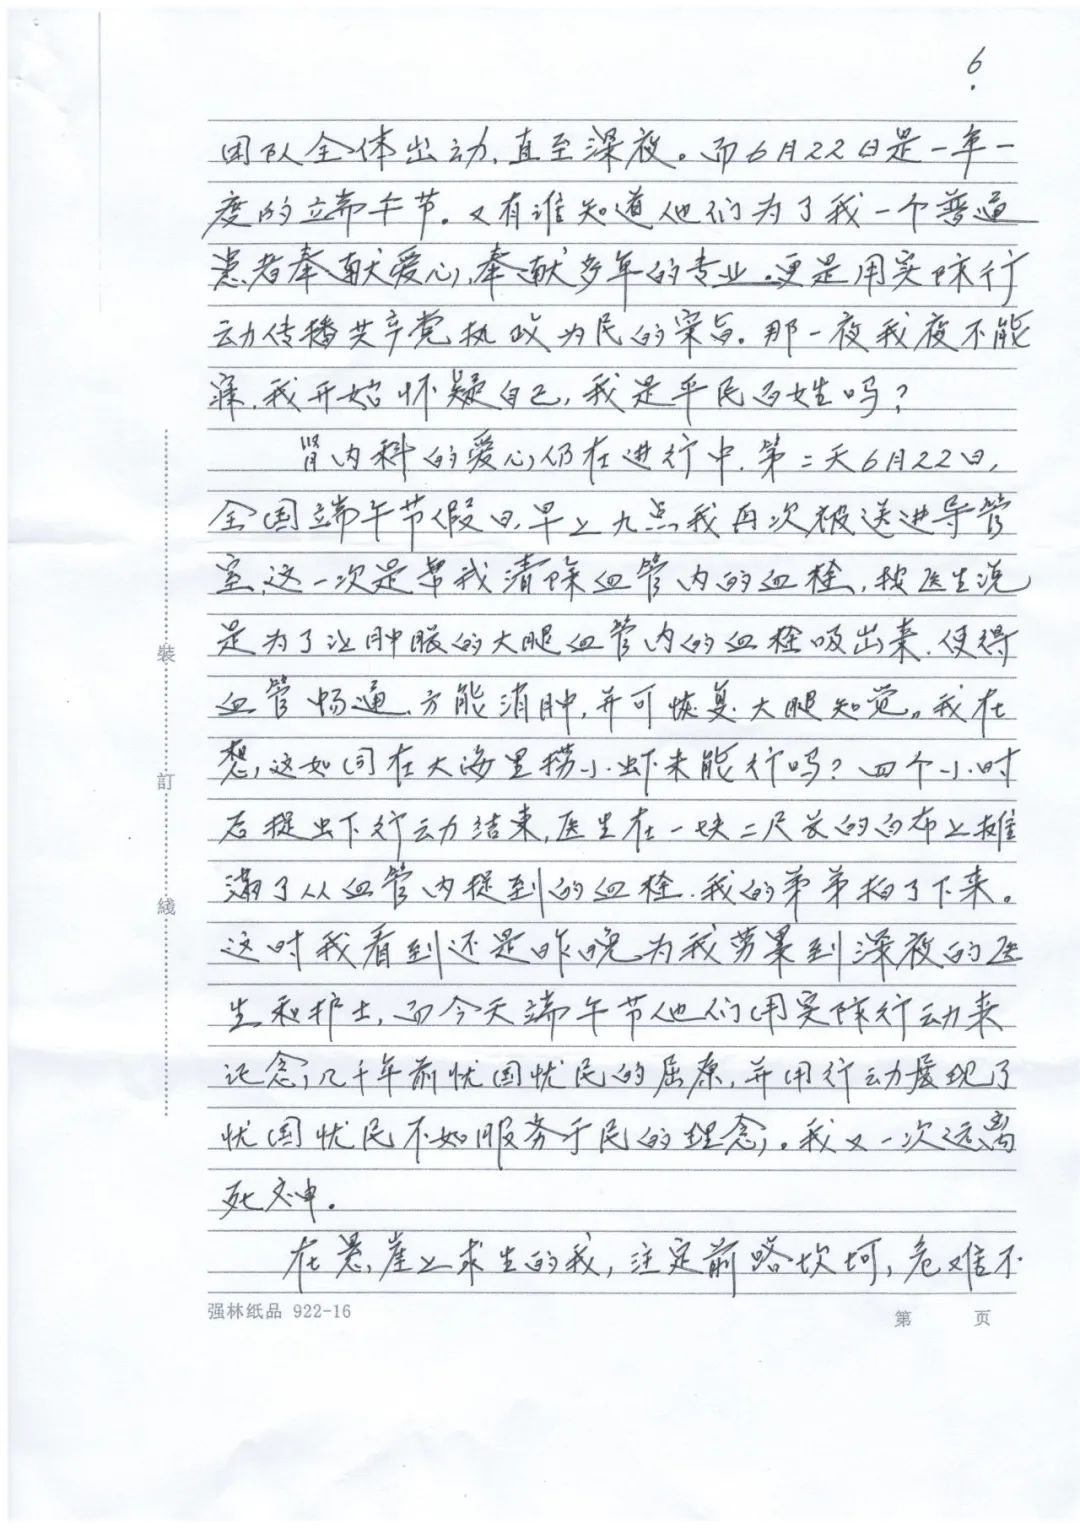 6.
团队全体出动,直至深夜。而6月22日是一年一
度的立端午节。又有谁知道他们为了我一个普通
患者奉献爱心,奉献多年的专业。更是用实际行
动传播共产党执政为民的宗旨。那一夜我夜不能
寐,我开始怀疑自己,我是平民百姓吗?
肾内科的爱心仍在进行中,第二天6月22日,
全国端午节假日,早上九点我再次被送进导管
室,这一次是帮我清除血管内的血栓,按医生说
是为了让肿胀的大腿血管内的血栓吸出来,使得
血管畅通,方能消肿,并可恢复大腿知觉。我在
想,这如同在大海里捞小虾米能行吗?四个小时
后捉虫下行动结束,医生在一块二尺长的白布上摊
满了从血管内捉到的血栓,我的弟弟拍了下来。
这时我看到还是昨晚为我劳累到深夜的医
生和护士,而今天端午节他们用实际行动来
记念,几千年前忧国忧民的屈原,并用行动展现了
忧国忧民不如服务于民的理念,。我又一次远离
死神。
在悬崖上求生的我,注定前路坎坷,危难不
裝
訂
綫
强林纸品 922-16
第 页